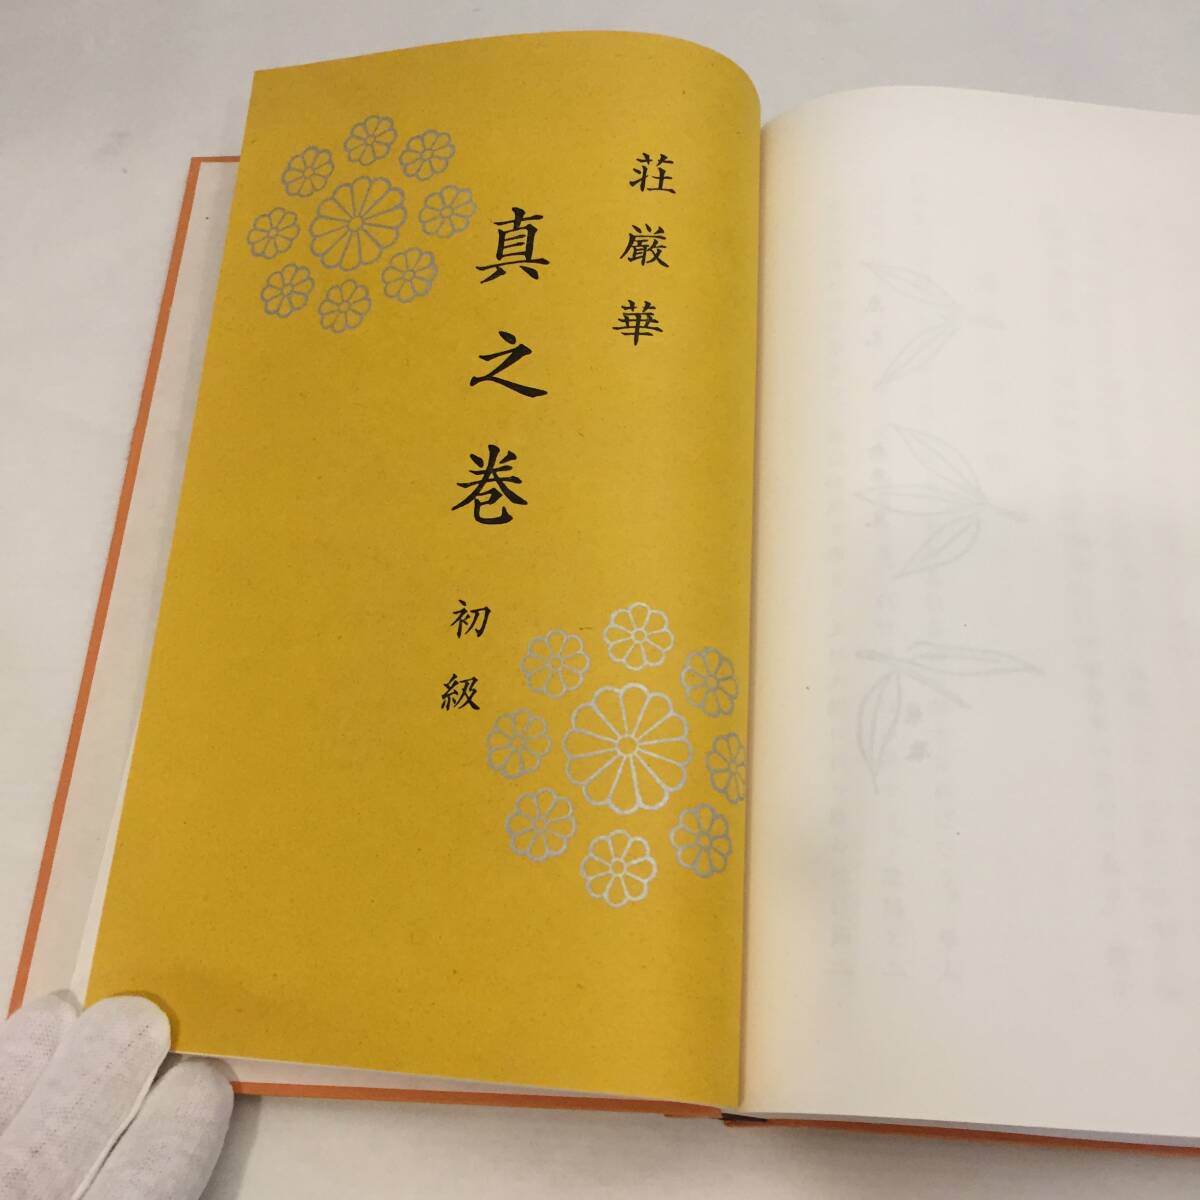 荘厳華
真之巻
初級